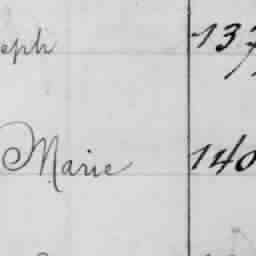 eph 137
Marie 140